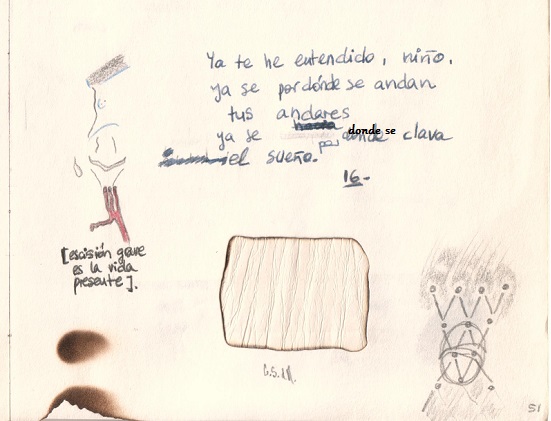 Ya te he entendido, niño.
ya se por dónde se andan
tus andares
ya se por donde se clava
el sueño.
16-
[escisión grave
es la vida
presente].
51